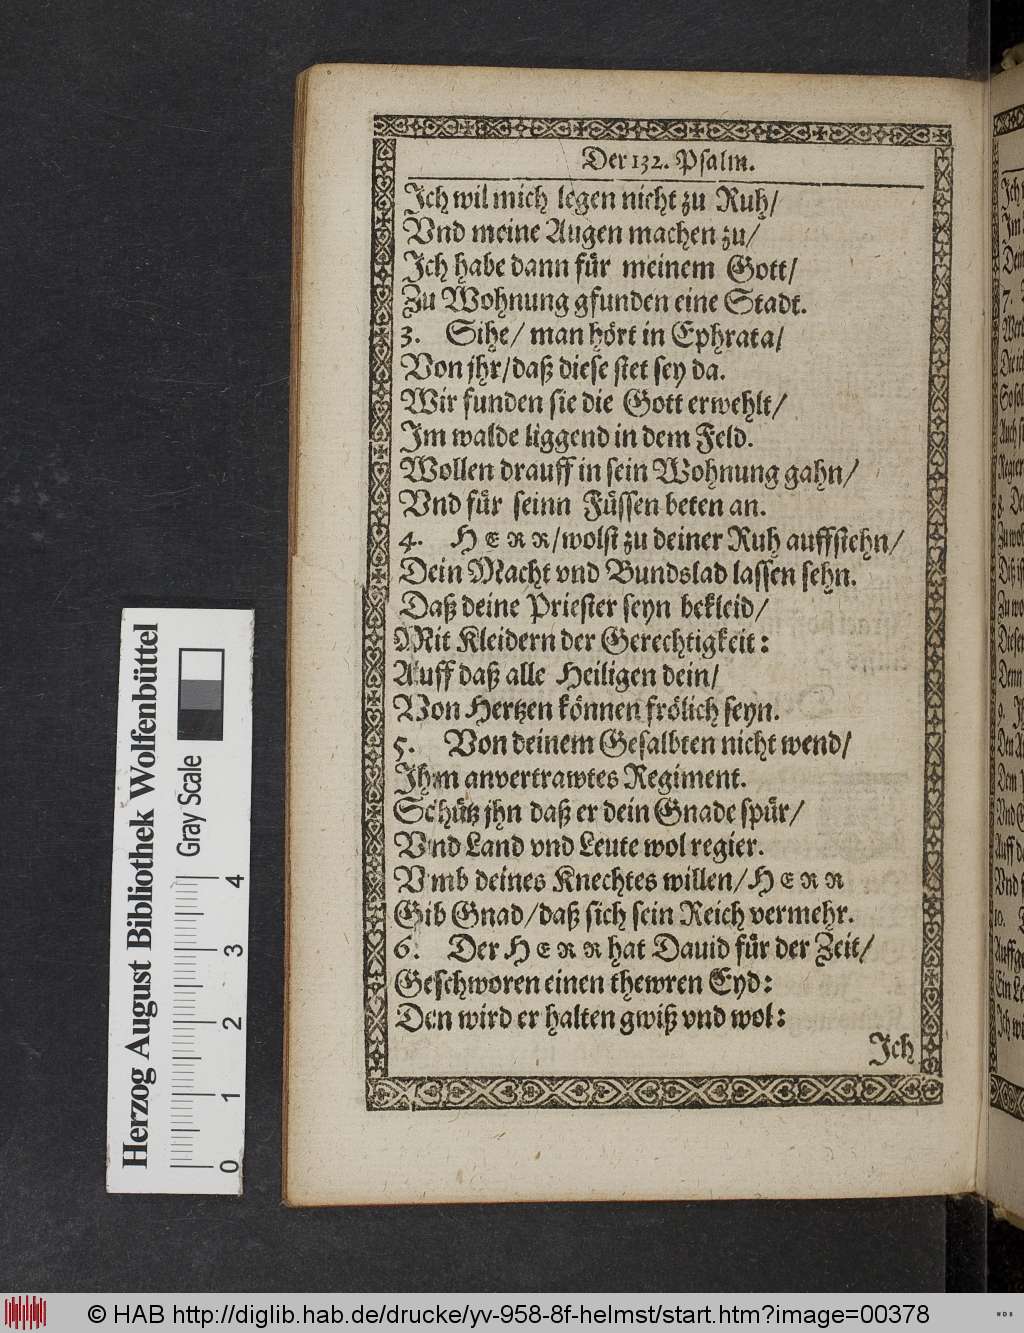 Der 132. Psalm.
Ich wil mich legen nicht zu Ruh/
Vnd meine Augen machen zu/
Ich habe dann für meinem Gott/
Zu Wohnung gfunden eine Stadt.
3. Sihe/ man hört in Ephrata/
Von jhr/daß diese stet sey da.
Wir funden sie die Gott erwehlt/
Im walde liggend in dem Feld.
Wollen drauff in sein Wohnung gahn/
Vnd für seinn Füssen beten an.
4. HERR/wolst zu deiner Ruh auffstehn/
Dein Macht vnd Bundslad lassen sehn.
Daß deine Priester seyn bekleid/
Mit Kleidern der Gerechtigkeit:
Auff daß alle Heiligen dein/
Von Hertzen können frölich seyn.
5. Von deinem Gesalbten nicht wend/
Ihm anvertrawtes Regiment.
Schütz jhn daß er dein Gnade spür/
Vnd Land vnd Leute wol regier.
Vmb deines Knechtes willen/HERR
Gib Gnad/daß sich sein Reich vermehr.
6. Der HERR hat Dauid für der Zeit/
Geschworen einen thewren Eyd:
Den wird er halten gwiß vnd wol:
Ich
Herzog August Bibliothek Wolfenbüttel
Gray Scale
0 1 2 3 4
© HAB http://diglib.hab.de/drucke/yv-958-8f-helmst/start.htm?image=00378